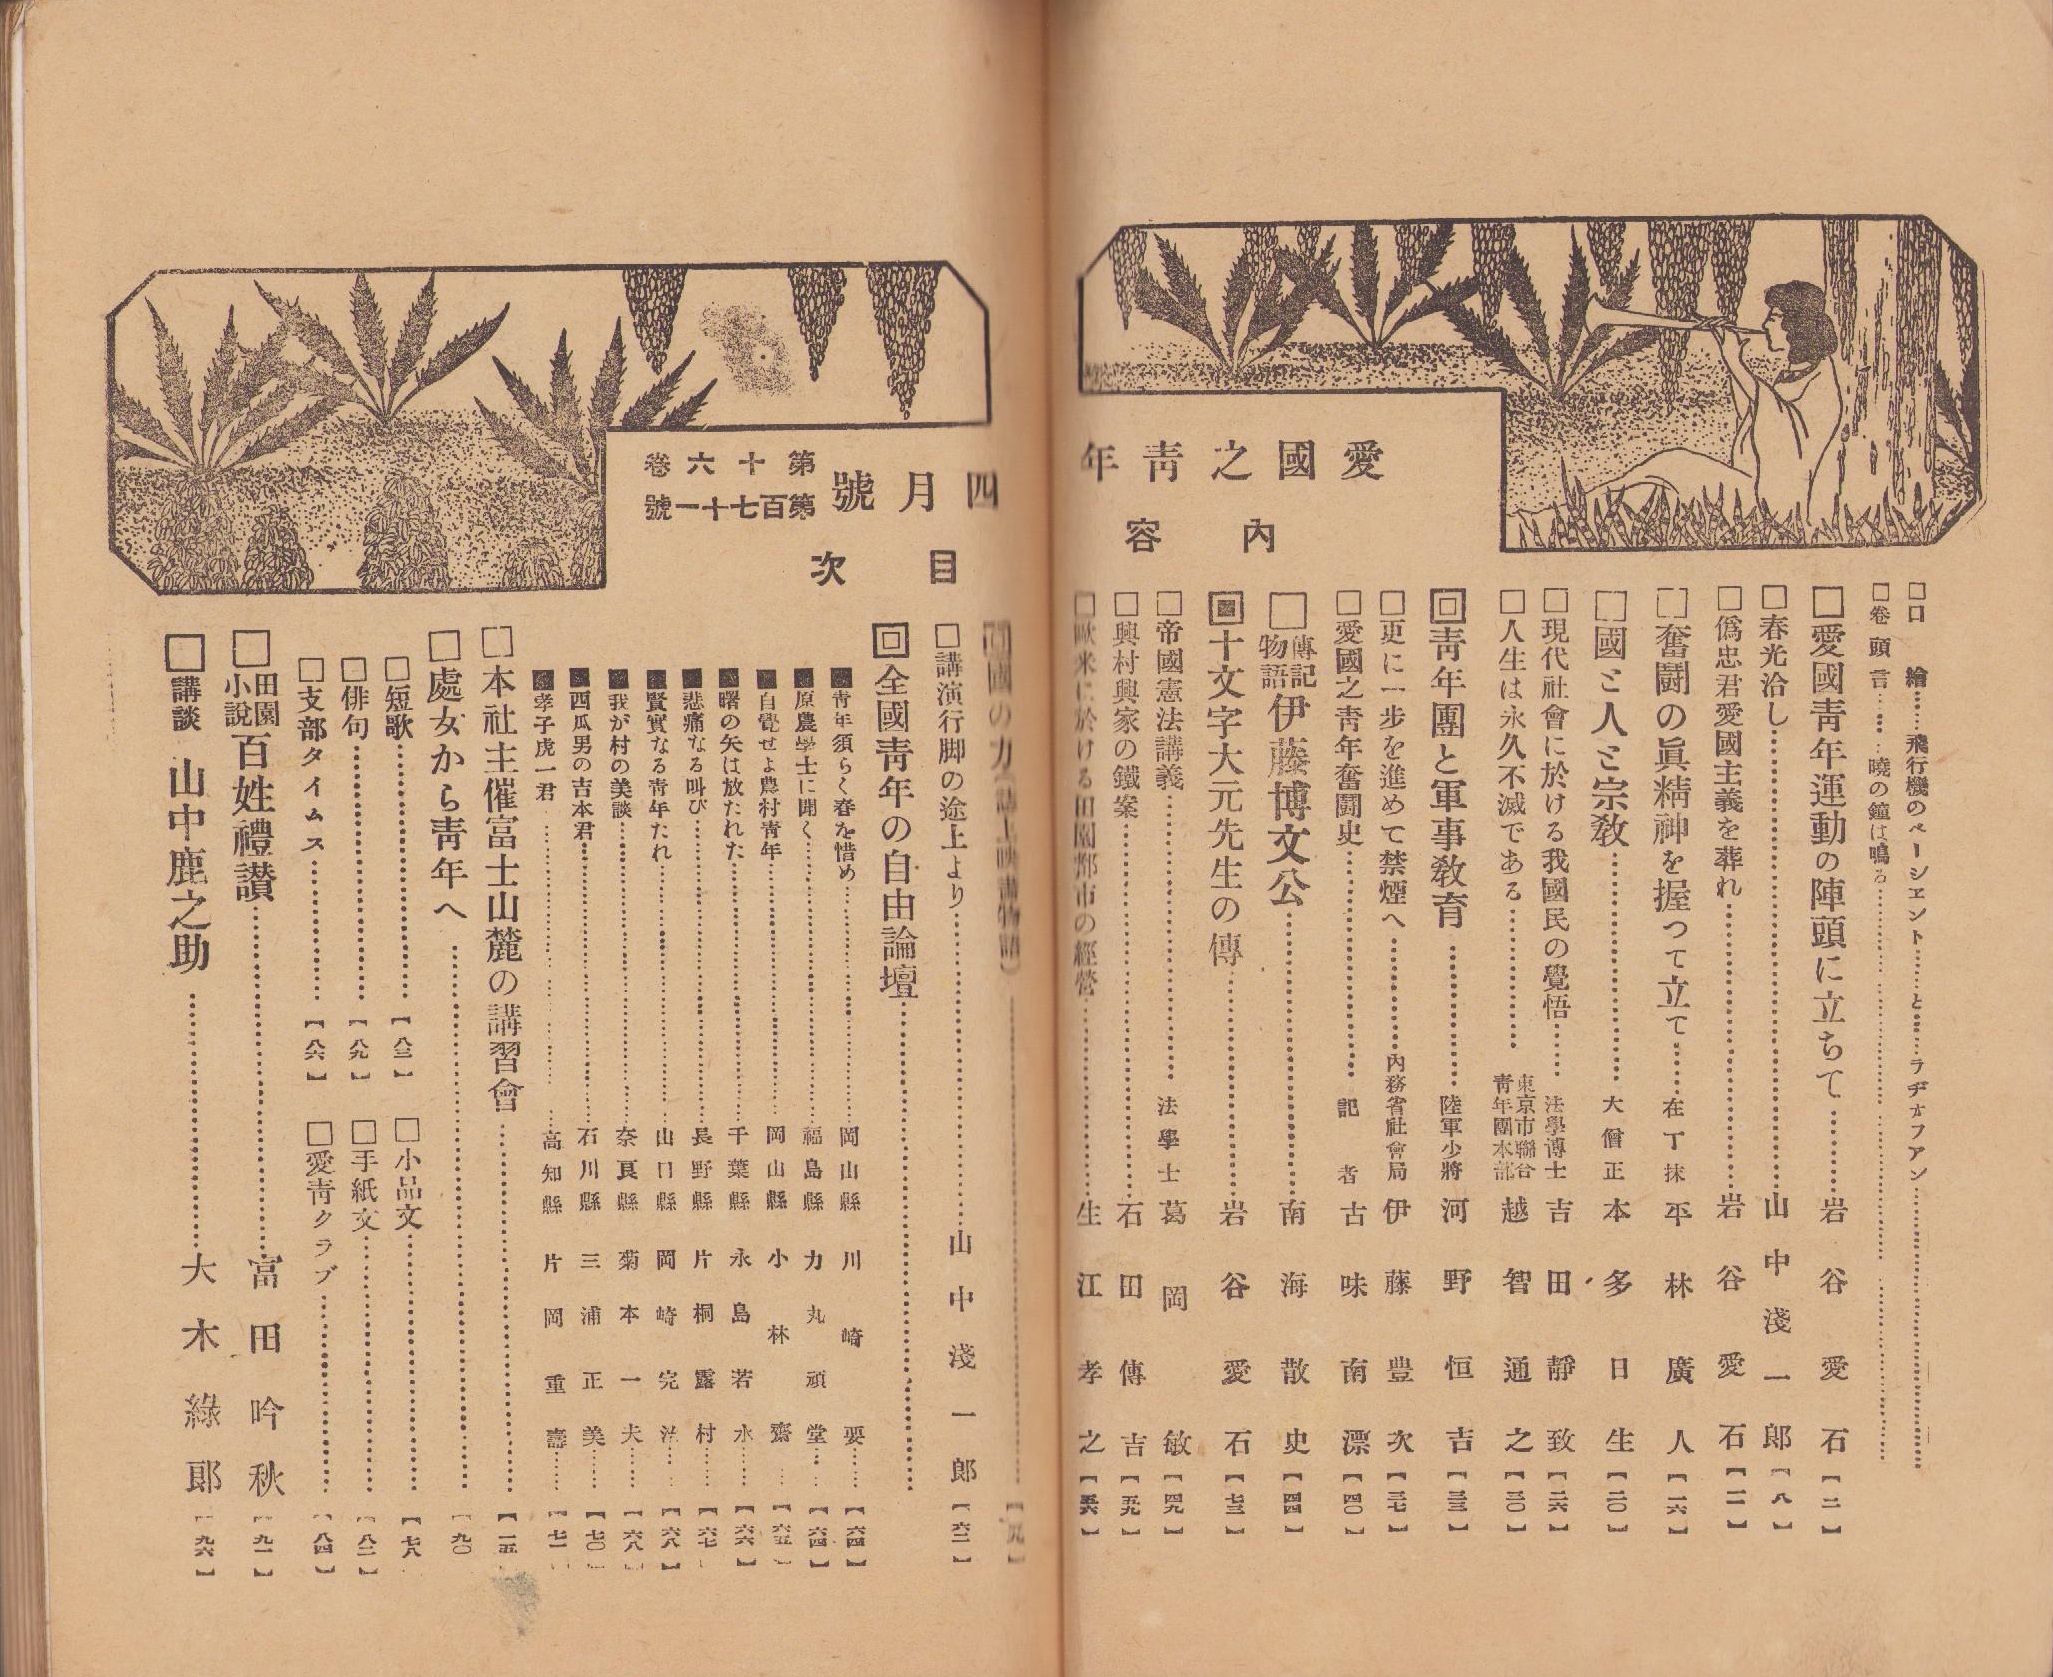 愛國之青年
四月號
第十六卷
第百七十一號
內容
目次
□口繪……飛行機のページエント……と……ラヂオフアン
□卷頭言……曉の鐘は鳴る
□愛國靑年運動の陣頭に立ちて……岩谷愛石【二】
□春光洽し……山中淺一郎【八】
□僞忠君愛國主義を葬れ……岩谷愛石【一一】
□奮鬪の眞精神を握つて立て……在丁抹 平林廣人【一六】
□國と人と宗敎……大僧正 本多日生【二〇】
□現代社會に於ける我國民の覺悟……法學博士 吉田靜致【二六】
□人生は永久不滅である……東京市聯合靑年團本部 越智通之【三〇】
□靑年團と軍事敎育……陸軍少將 河野恒吉【三三】
□更に一步を進めて禁煙へ……內務省社會局 伊藤豊次【三七】
□愛國之靑年奮鬪史……記者 古味南漂【四〇】
□傳記物語 伊藤博文公……南海散史【四四】
□十文字大元先生の傳……岩谷愛石【七三】
□帝國憲法講義……法學士 葛岡敏【四九】
□興村興家の鐵案……石田傳吉【五九】
□歐米に於ける田園都市の經營……生江孝之【五六】
□國の力
□講演行脚の途上より……山中淺一郎【六二】
□全國靑年の自由論壇
■靑年須らく春を惜め……岡山縣 川崎要……【六四】
■原農學士に聞く……福島縣 力丸頑堂……【六四】
■自覺せよ農村靑年……岡山縣 小林齋……【六五】
■曙の矢は放たれた……千葉縣 永島若水……【六六】
■悲痛なる叫び……長野縣 片桐露村……【六七】
■賢實なる靑年たれ……山口縣 岡崎完治……【六八】
■我が村の美談……奈良縣 菊本一夫……【六八】
■西瓜男の吉本君……石川縣 三浦正美……【七〇】
■孝子虎一君……高知縣 片岡重壽……【七一】
□本社主催富士山麓の講習會……【一五】
□處女から靑年へ……【九〇】
□短歌……【八三】
□小品文……【七八】
□俳句……【八九】
□手紙文……【八二】
□支部タイムス……【八六】
□愛靑クラブ……【八四】
□田園小說 百姓禮讃……富田吟秋【九一】
□講談 山中鹿之助……大木綠郞【九六】